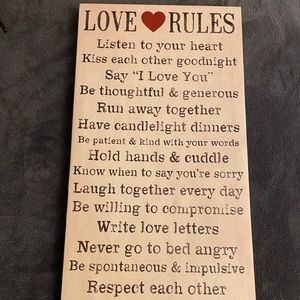 LOVE RULES
Listen to your heart
Kiss each other goodnight
Say "I Love You"
Be thoughtful & generous
Run away together
Have candlelight dinners
Be patient & kind with your words
Hold hands & cuddle
Know when to say you're sorry
Laugh together every day
Be willing to compromise
Write love letters
Never go to bed angry
Be spontaneous & impulsive
Respect each other